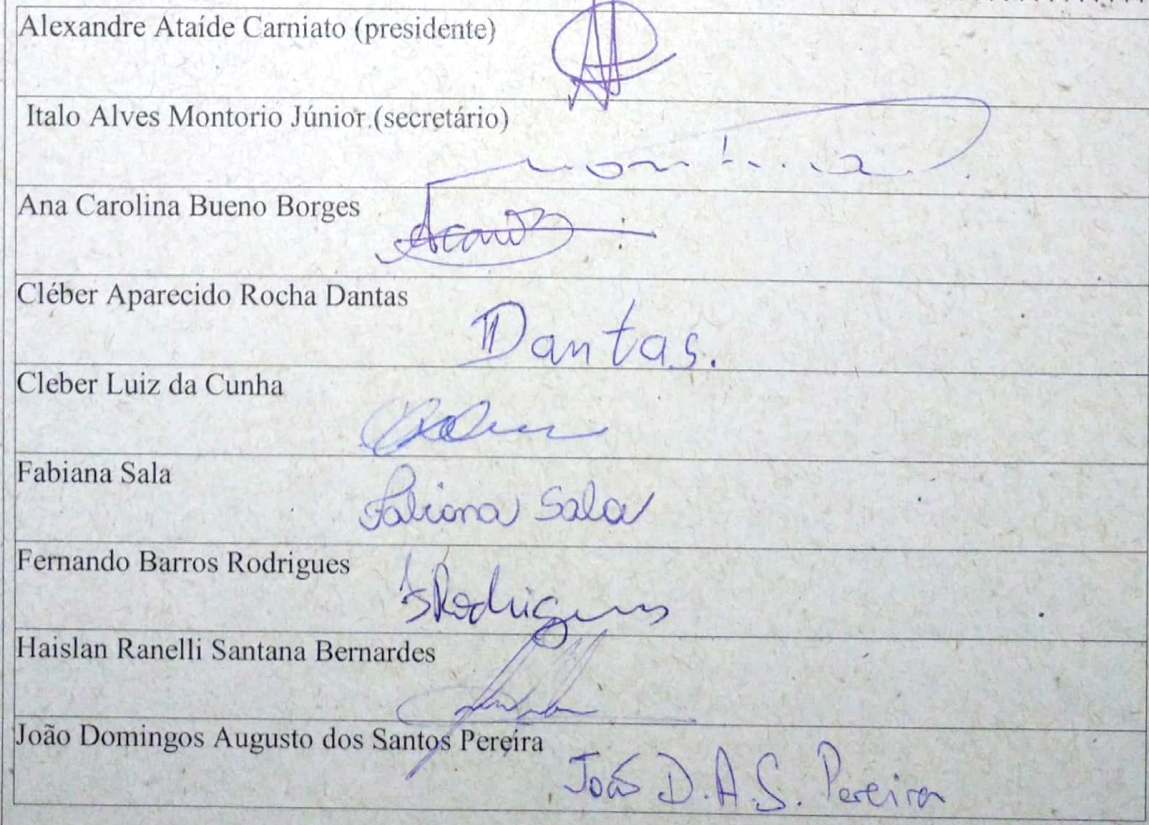 Alexandre Ataíde Carniato (presidente)
Italo Alves Montorio Júnior.(secretário)
Ana Carolina Bueno Borges
Cléber Aparecido Rocha Dantas
Dantas.
Cleber Luiz da Cunha
Fabiana Sala
Fabiana Sala
Fernando Barros Rodrigues
Rodrigues
Haislan Ranelli Santana Bernardes
João Domingos Augusto dos Santos Pereira
João D.A.S. Pereira